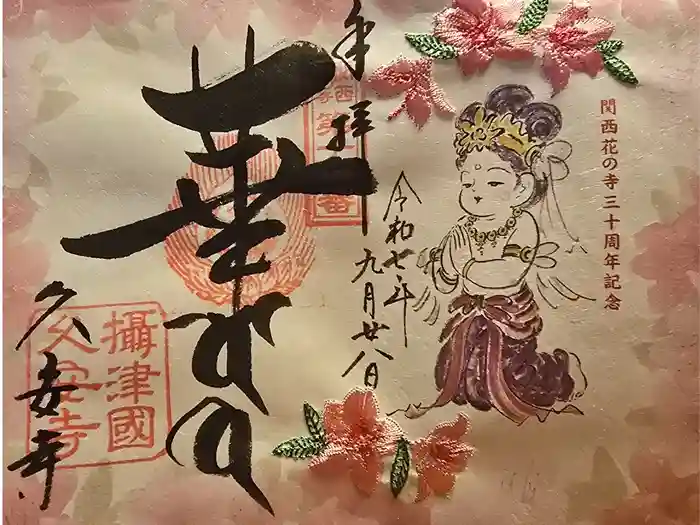 関西花の寺三十周年記念
奉拝
令和七年九月廿八日
華の
久安寺
攝津國
久安寺